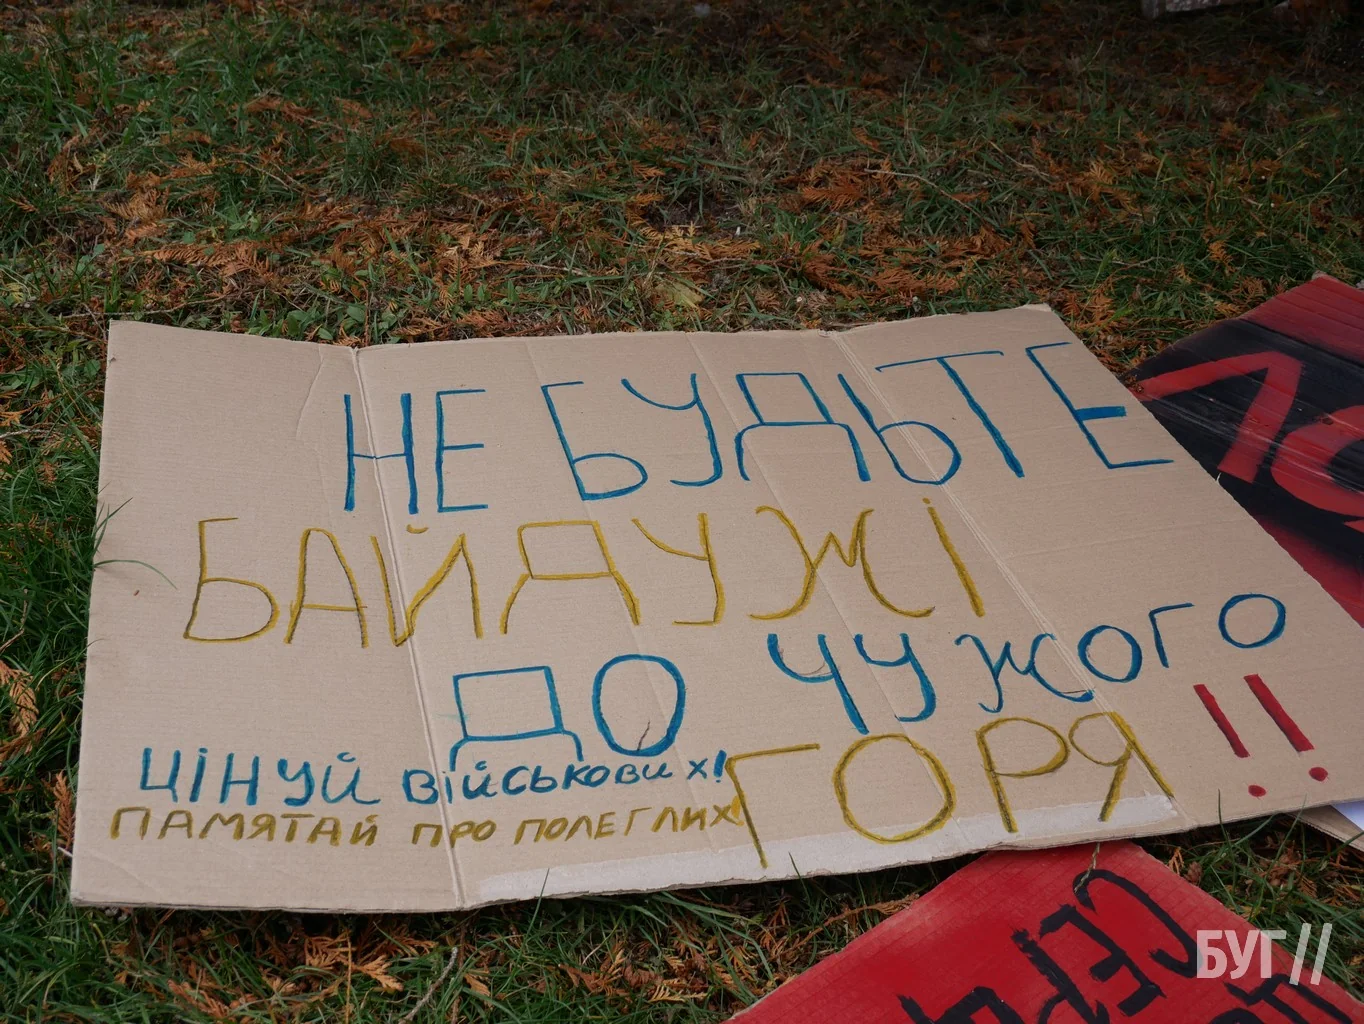 НЕ БУДЬТЕ
БАЙДУЖІ
ДО ЧУЖОГО
ГОРЯ!!
ЦІНУЙ ВІЙСЬКОВИХ!
ПАМЯТАЙ ПРО ПОЛЕГЛИХ
БУГ//